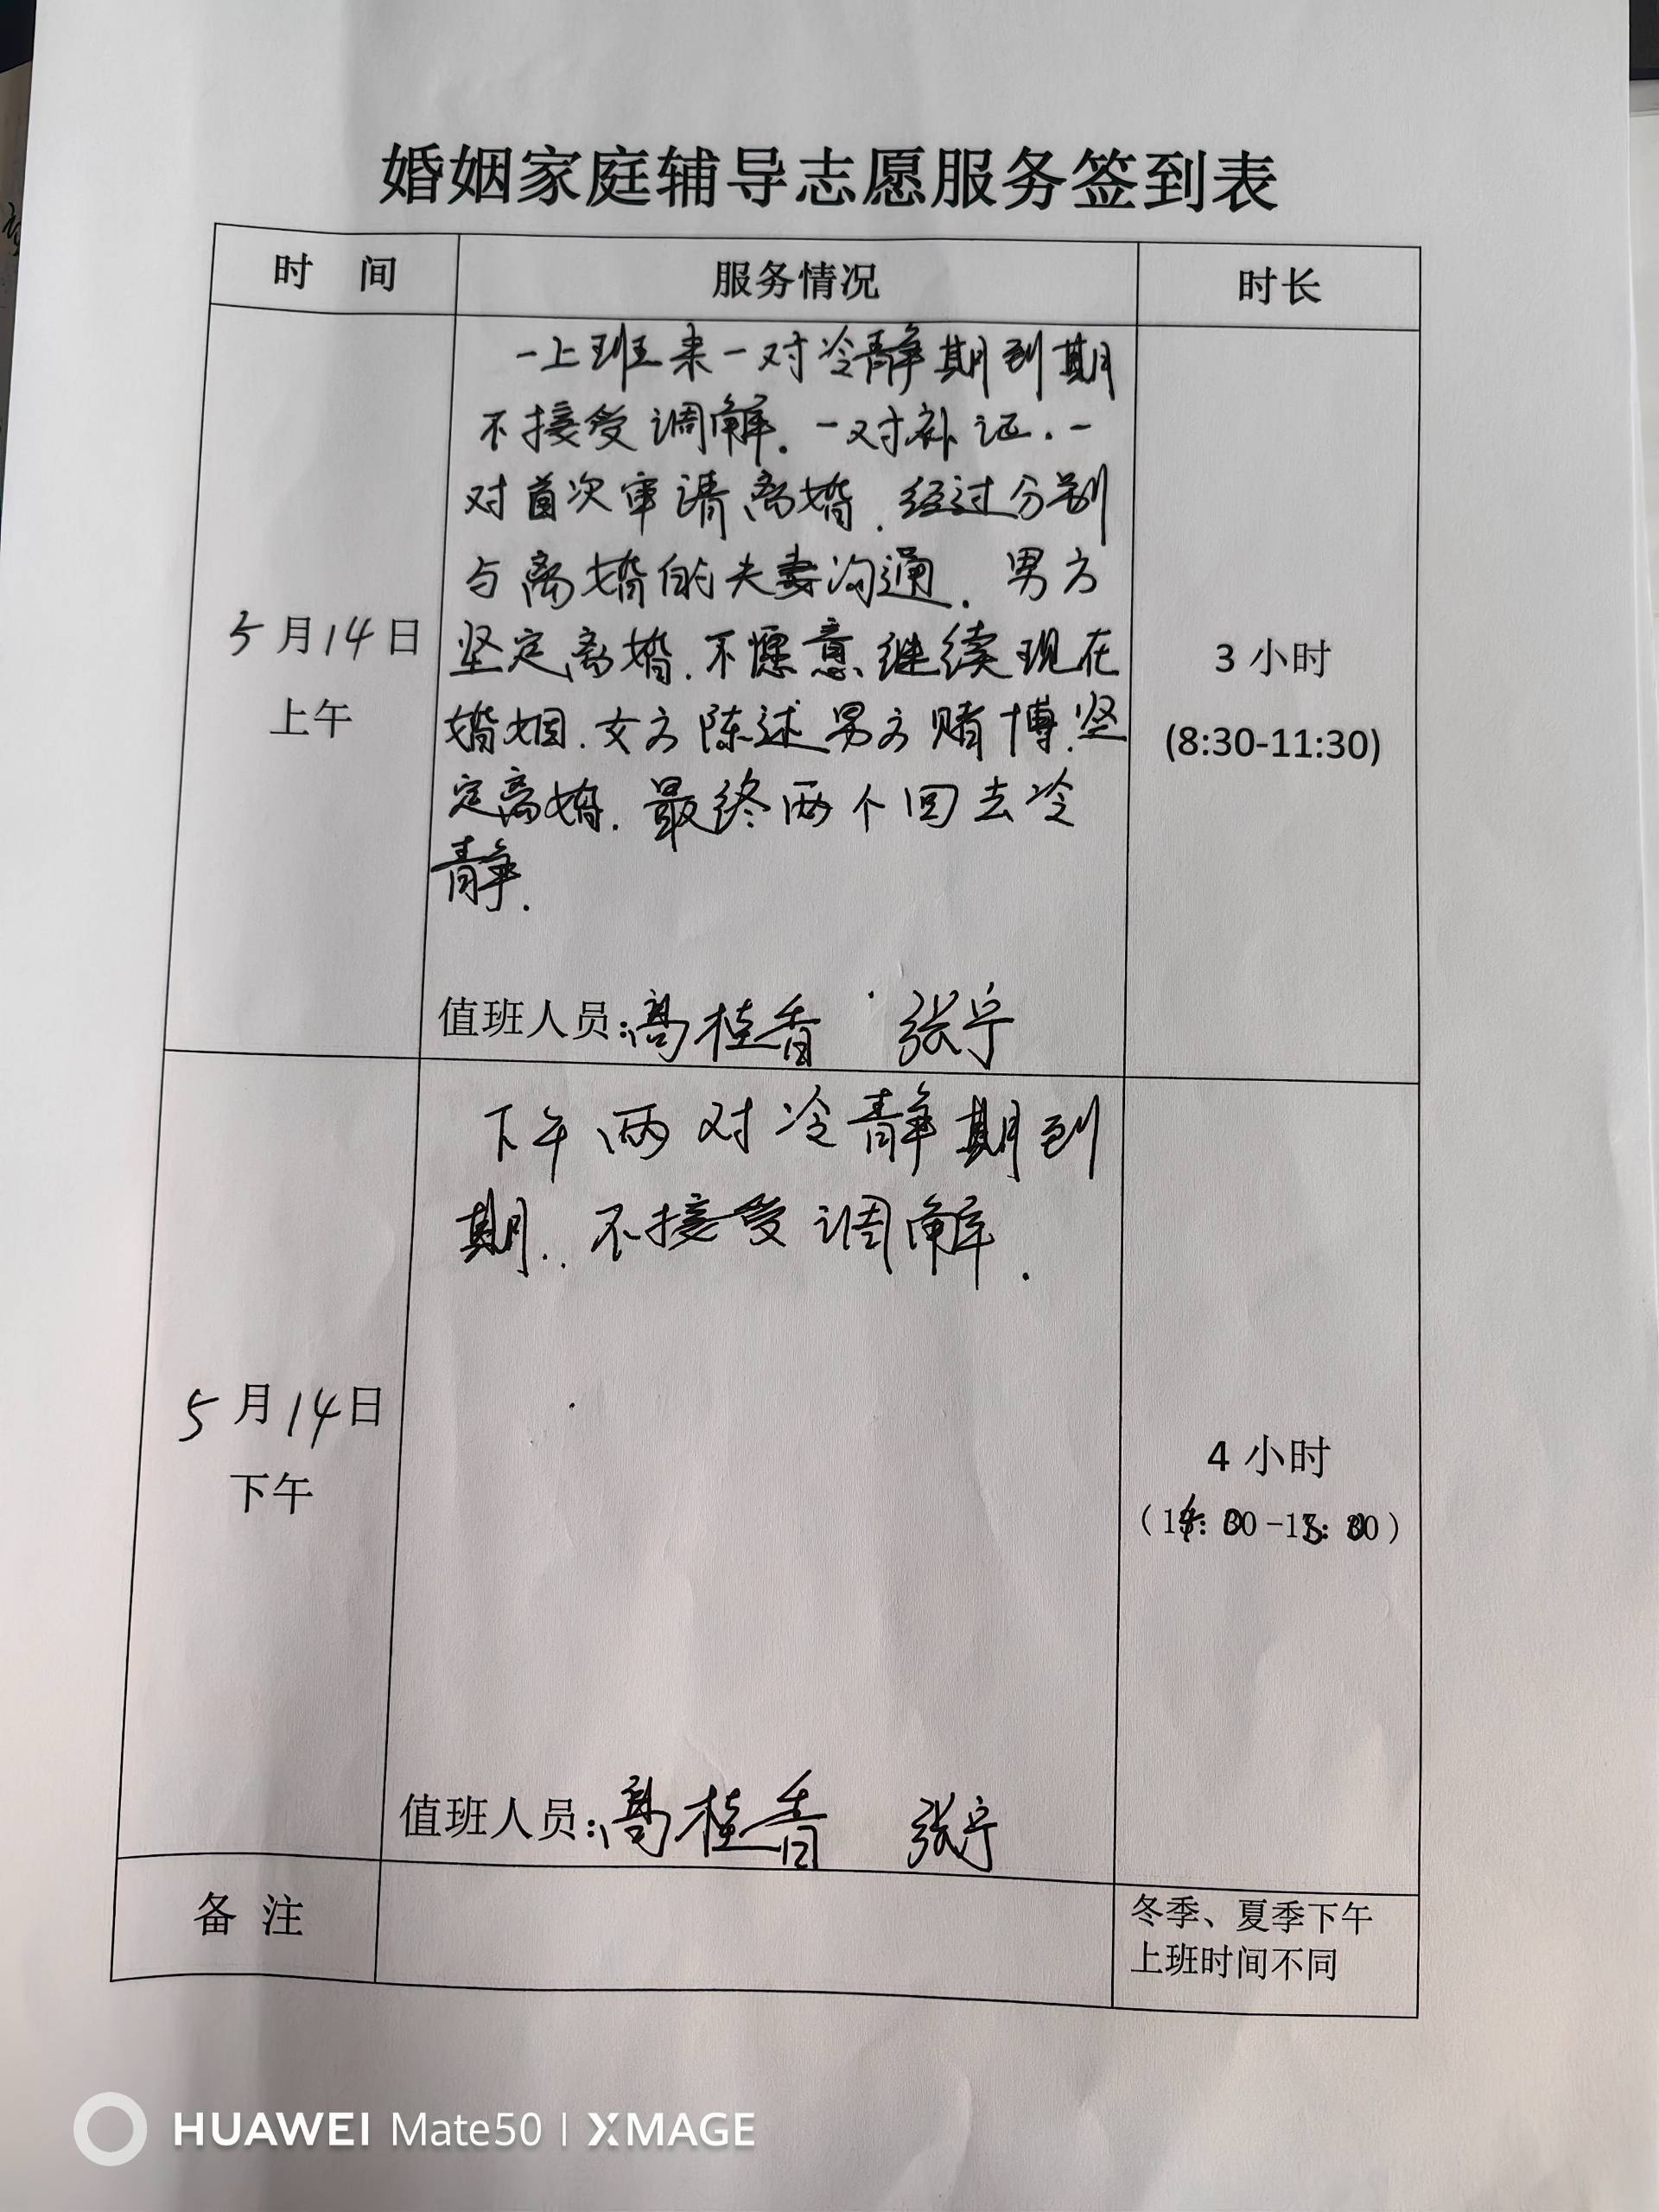 婚姻家庭辅导志愿服务签到表
时 间 服务情况 时长
一上班来一对冷静期到期
不接受调解.一对补证.一
对首次审请离婚.经过分别
与离婚的夫妻沟通.男方
坚定离婚.不愿意继续现在
婚姻.女方陈述男方赌博.坚
定离婚.最终两个回去冷
静.
5月14日
上午
3 小时
(8:30-11:30)
值班人员:高桂香 张宁
下午两对冷静期到
期.不接受调解.
5月14日
下午
4 小时
值班人员:高桂香 张宁
备 注
冬季、夏季下午
上班时间不同
HUAWEI Mate50 | XMAGE